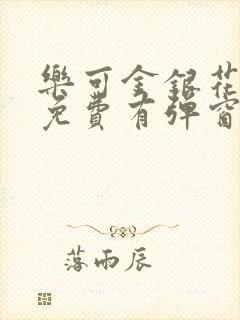 樂可金銀花
免費有彈窗
落雨辰